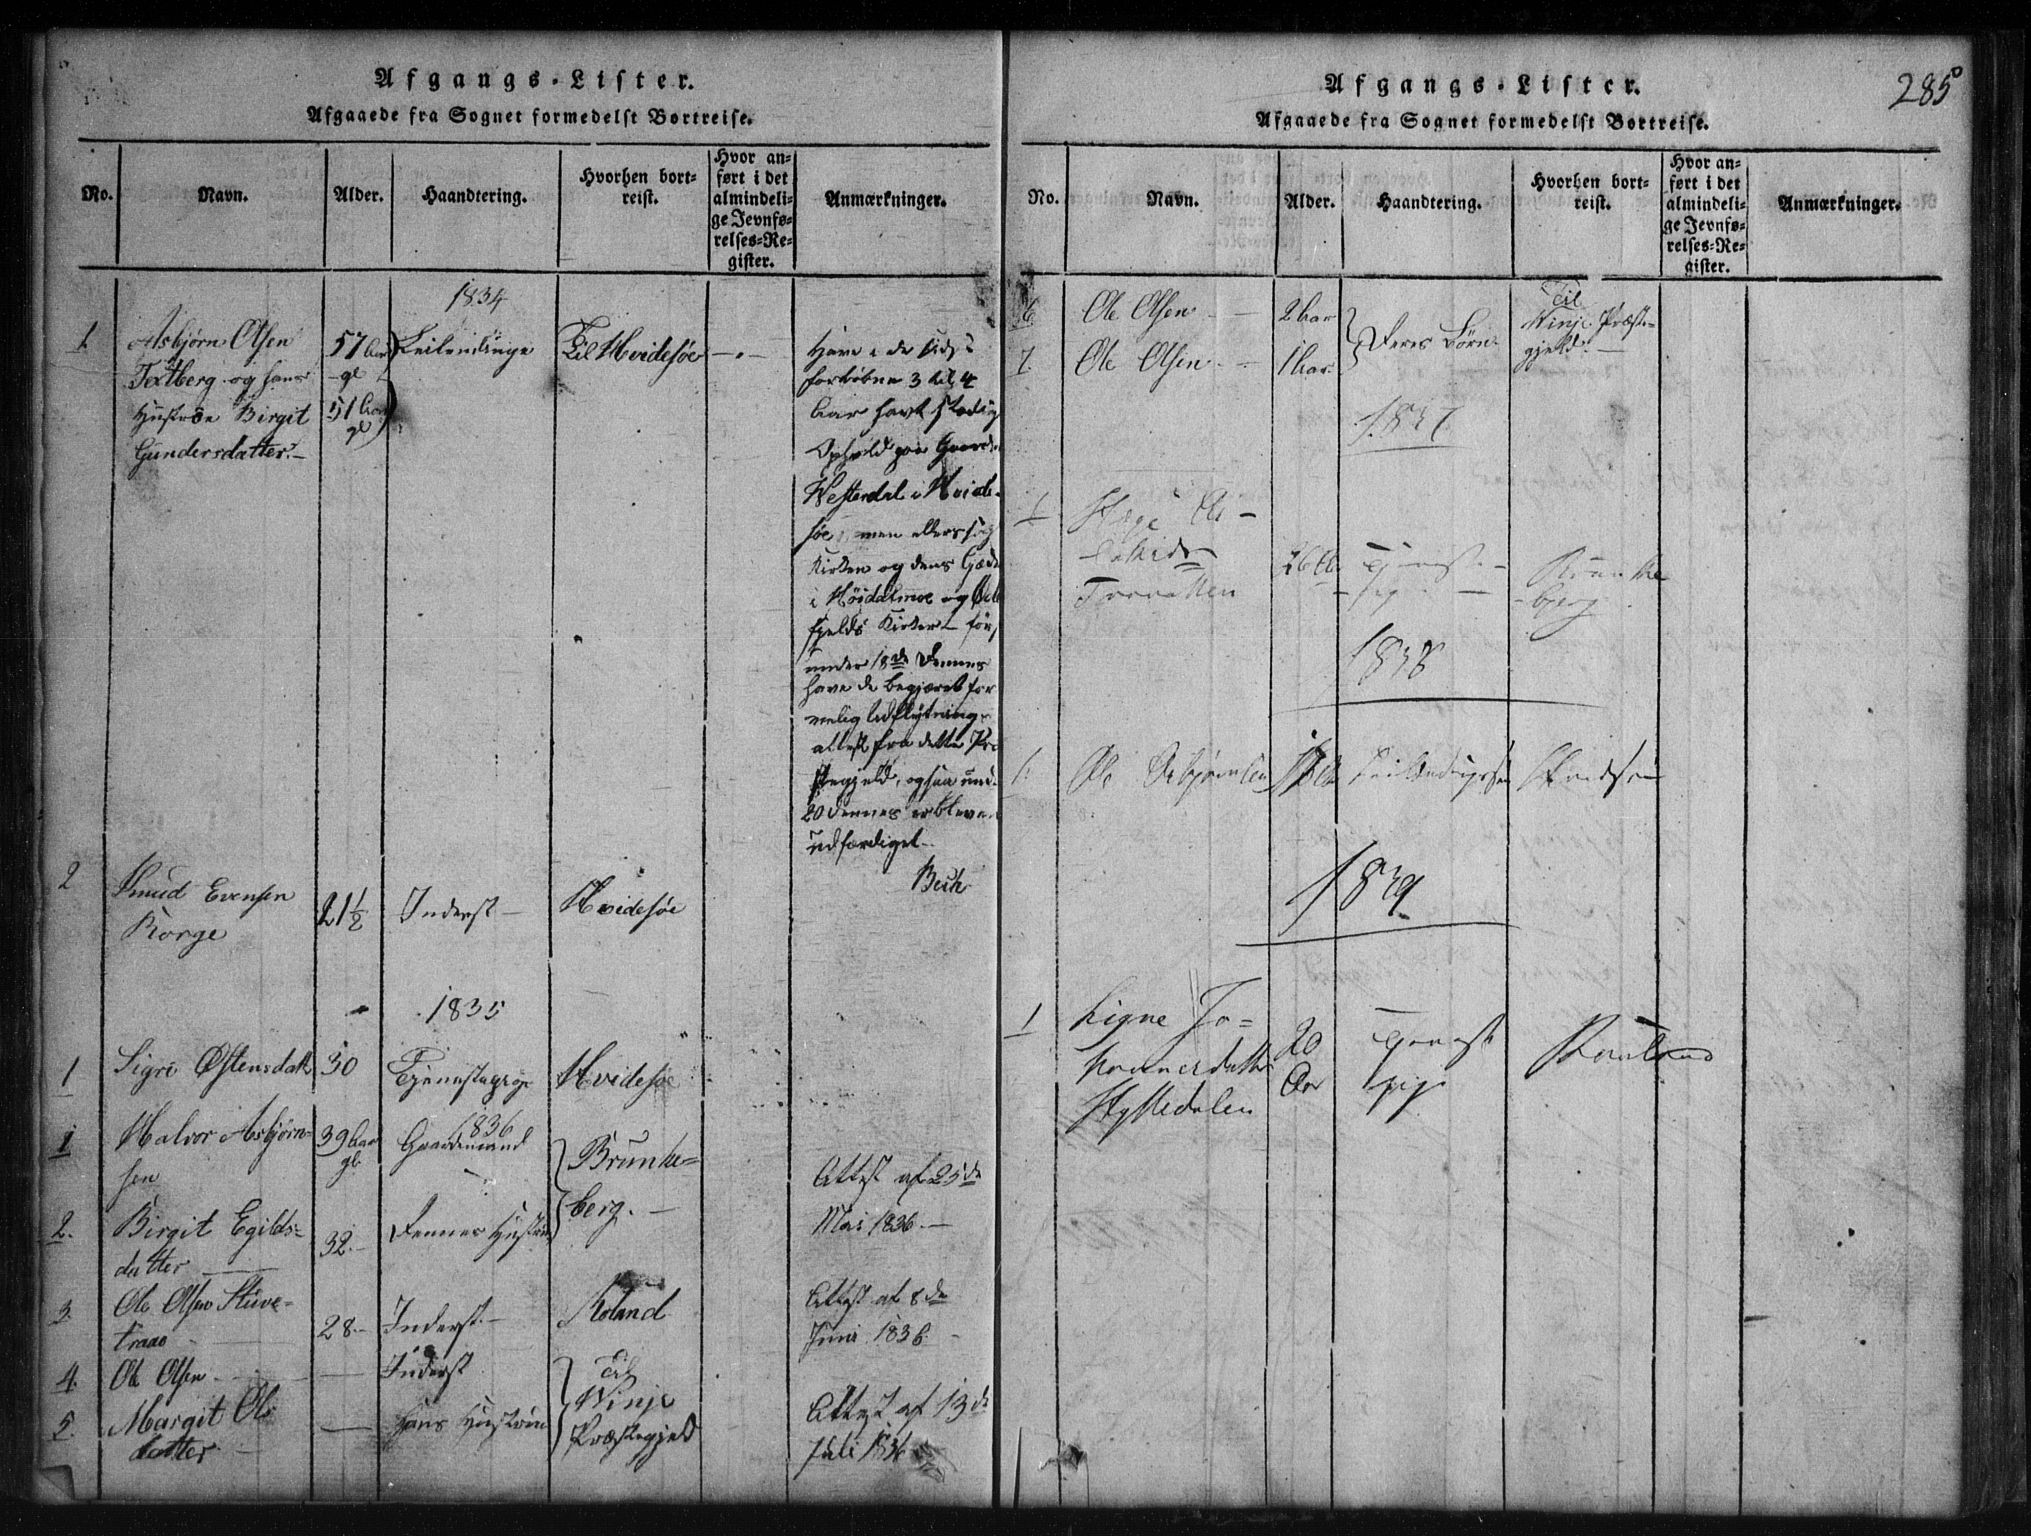 Afgangs-Lister.
Afgaaede fra Sognet formedelst Bortreise.
No.
Navn.
Alder.
Haandtering.
Hvorhen bort-
reist.
Hvor an-
ført i det
almindeli-
ge Jevnfø-
relses-Re-
gister.
Anmærkninger.
1834
1.
Asbjørn Olsen
og hans
Hustroe Birgit
Gundersdatter.
57 Aar
gl
51 Aar
gl
Leilendinge
Til Hvidesøe
Have i de sidst
forløbne 3 til 4
Aar havt stadig
Ophold paa Gaarden
Westerdal i Hvide-
søe, men ellers søgt
Kirken og dens
i Høidalsmoe og
fjelds Kirker - først
under 18de Dennes
have de begjæret for
melig Udflytnings-
attest fra dette Præ
stegjeld, ogsaa under
20 dennes er bleven
udfærdiget.
Bech
2
Knud Evensen
Korge
21½
Inderst
Hvidesøe
1835
1
Sigri Østensdatt
30
Tjenestepige
Hvidesøe
1836
1
Halvor Asbjørn-
sen
39 Aar
gl.
Gaardmand
Brunke-
berg.
Attest af 25de
Mai 1836.
2.
Birgit Egilds-
datter
32.
Dennes Hustru
3.
Ole Olsen Stuve-
traao
28.
Inderst.
Roland
Attest af 8de
Juni 1836.
4.
Ole Olsen
Inderst
Til
Winje
Præstegjeld
Attest af 13de
Juli 1836
5.
Margit Ols
datter
Hans Hustrue
Afgangs-Lister.
285
Afgaaede fra Sognet formedelst Bortreise.
No.
Navn.
Alder.
Haandtering.
Hvorhen bort-
reist.
Hvor an-
ført i det
almindeli-
ge Jevnfø-
relses-Re-
gister.
Anmærkninger.
6
Ole Olsen
2 Aar
Deres Børn
Til
Winje Præste-
gjeld.
7.
Ole Olsen
1 Aar
1837
1
26
Tjenest-
pig
Brunke
bjerg
1838
1.
Ole Asbjørnsen
Hvidsøe
1839
1
Signe Jo-
hannesdatter
Hyttedalen
20
Aar
Tjenest
pige
Rauland